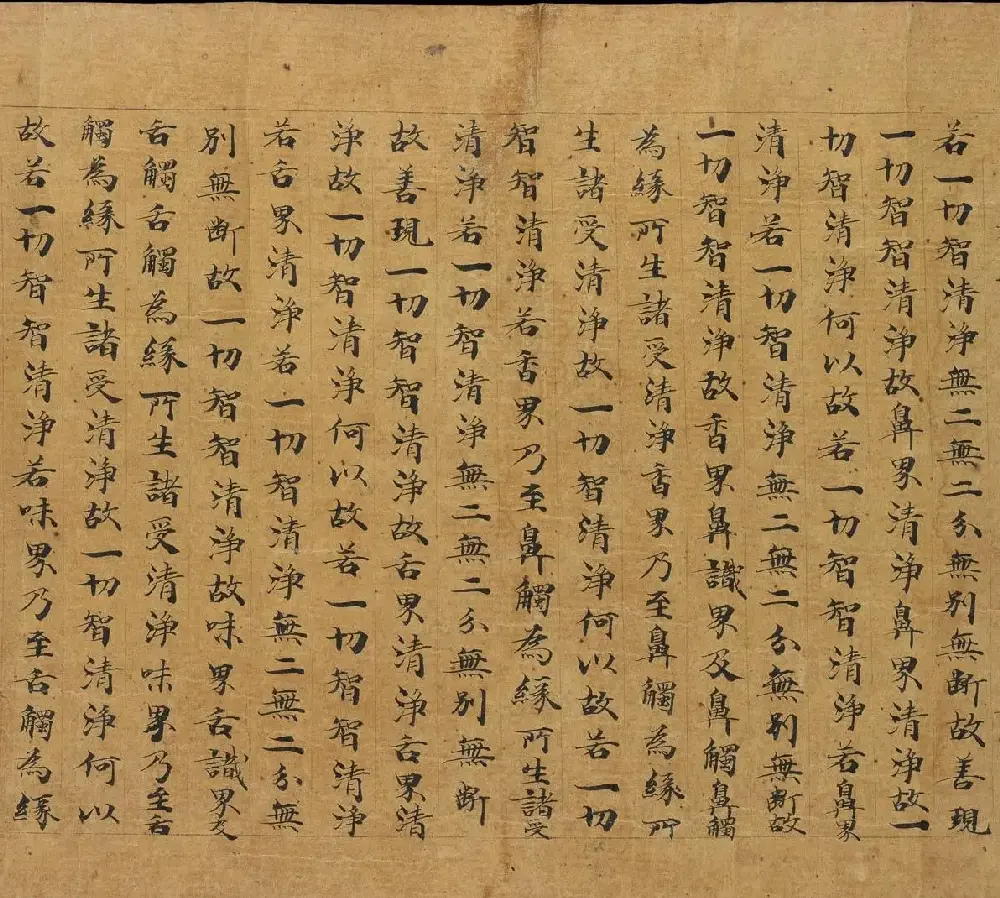 若一切智清淨無二無二分無別無斷故善現
一切智智清淨故鼻界清淨鼻界清淨故一
切智清淨何以故若一切智智清淨若鼻界
清淨若一切智智清淨無二無二分無別無斷故
一切智智清淨故香界鼻識界及鼻觸鼻觸
為緣所生諸受清淨香界乃至鼻觸為緣所
生諸受清淨故一切智清淨何以故若一切
智智清淨若香界乃至鼻觸為緣所生諸受
清淨若一切智清淨無二無二分無別無斷
故善現一切智智清淨故舌界清淨舌界清
淨故一切智清淨何以故若一切智智清淨
若舌界清淨若一切智清淨無二無二分無
別無斷故一切智智清淨故味界舌識界及
舌觸舌觸為緣所生諸受清淨味界乃至舌
觸為緣所生諸受清淨故一切智清淨何以
故若一切智智清淨若味界乃至舌觸為緣